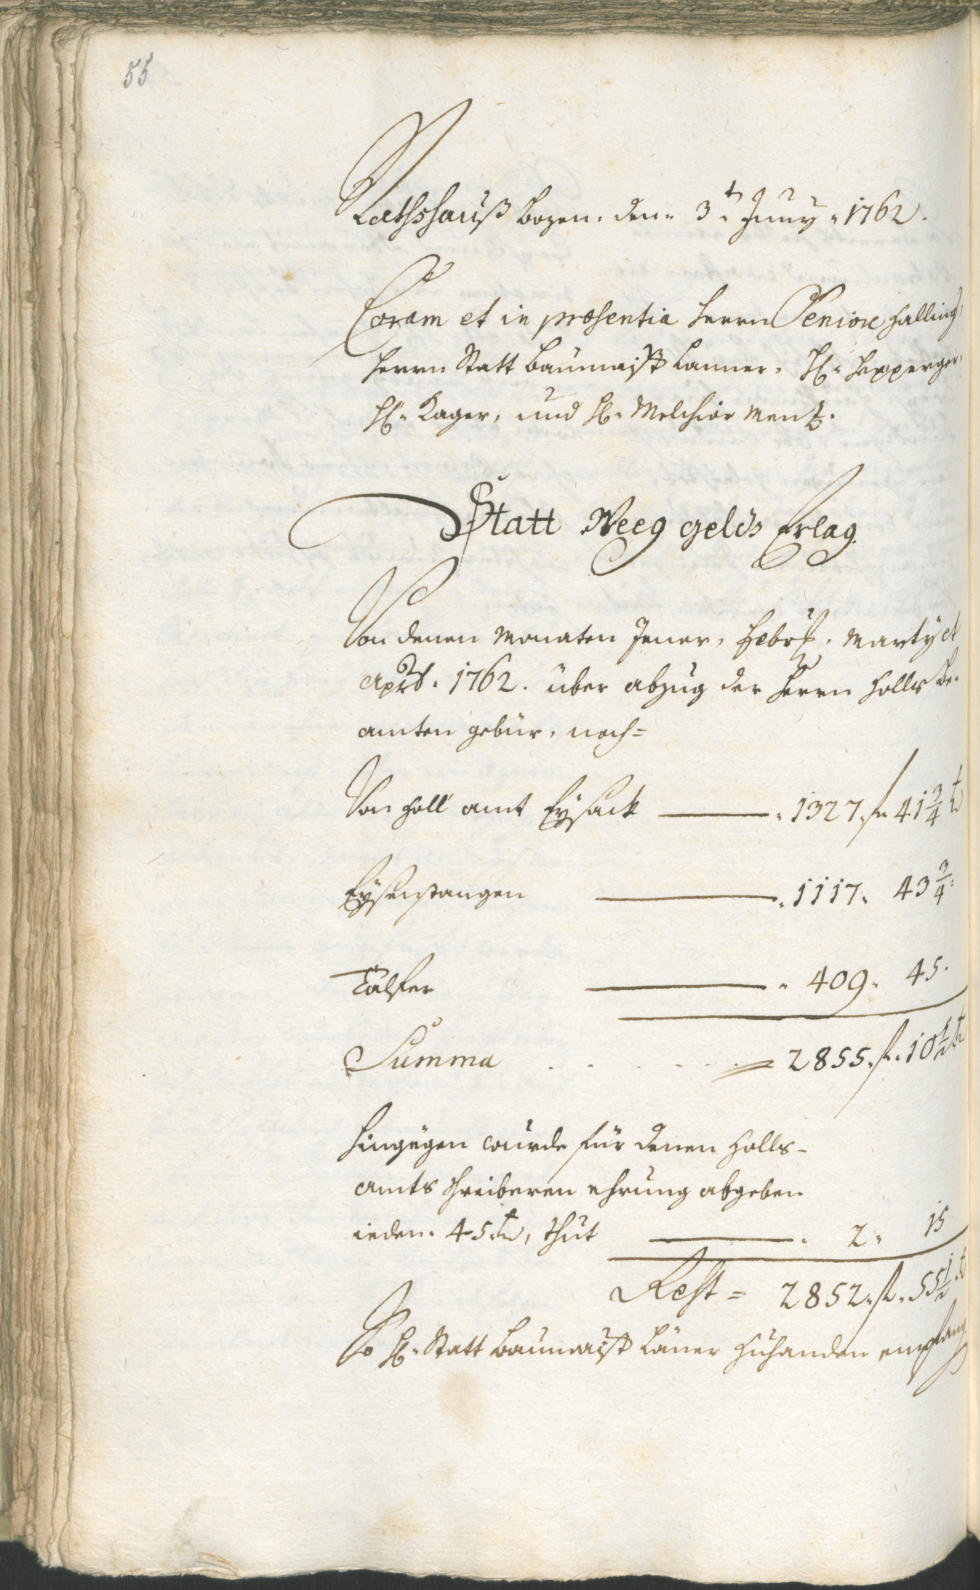 55
Rathshauß Bozen. den 3.t Juny 1762.
Coram et in præsentia Herrn Seniore Halling,
Herrn Statt Baumaistr Lanner, Hl: Hepperger,
Hl: Kager, und Hl: Melchior Menz.
Statt Weeg gelds Erlag.
Von denen Monaten Jener, Febr: Marty et
Apr: 1762. über abzug der Herrn Zolls Be-
amten gebür, noch=
Von Zoll amt Eysack 1327. f 41 3/4 kr
Eysenstangen 1117. 43 3/4
Talfer 409. 45.
Summa = 2855. f. 10 1/2 kr
Hingegen wurde für denen Zolls-
amts schreiberen ehrung abgeben
ieden 45 kr, thut 2. 15
Rest = 2852. f. 55 1/2 kr
So Hl: Statt Baumaistr Laner zuhanden empfang